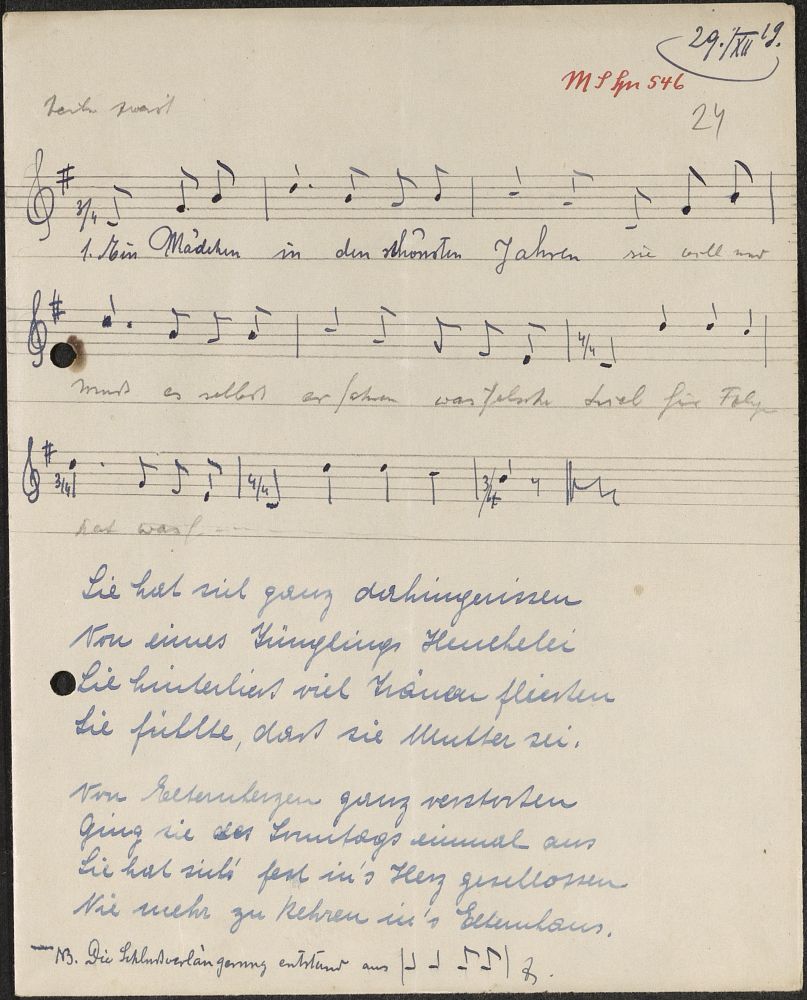 29./XII 19.
24
3/4
1. Ein Mädchen in den schönsten Jahren sie will und
4/4
muß es selbst erfahren was falsche für Folge
3/4 4/4 3/4
hat was
Sie hat sich ganz dahingerissen
Von eines Jünglings Heuchelei
Sie hinterließ viel Tränen fließen
Sie fühlte, daß sie Mutter sei.
Von Elternherzen ganz verstoßen
Ging sie des Sonntags einmal aus
Sie hat sich's fest in's Herz geschlossen
Nie mehr zu kehren in's Elternhaus.
NB. Die Schlußverlängerung entstand aus